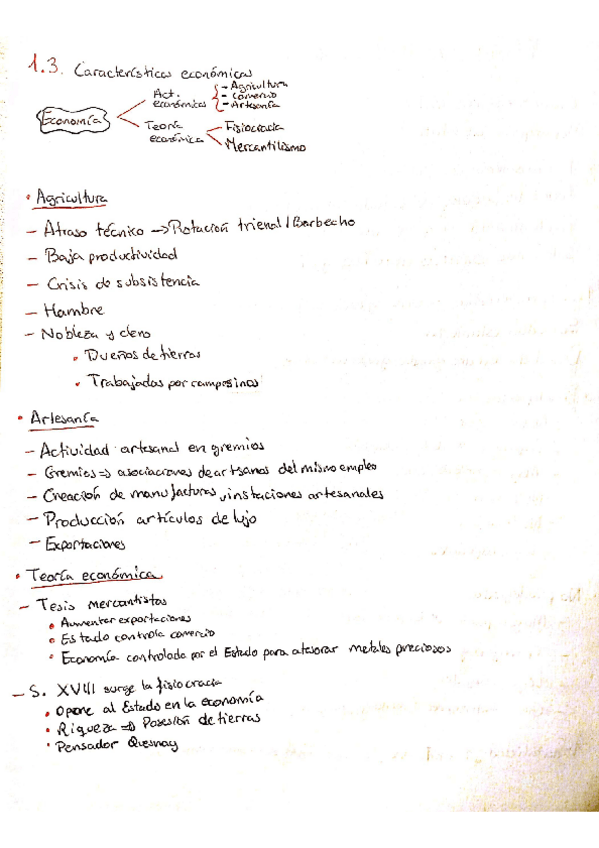 1.3. Características económicas
Economía
Act. económicas
- Agricultura
- Comercio
- Artesanía
Teoría económica
Fisiocracia
Mercantilismo
• Agricultura
- Atraso técnico -> Rotación trienal / Barbecho
- Baja productividad
- Crisis de subsistencia
- Hambre
- Nobleza y clero
• Dueños de tierras
• Trabajadas por campesinos
• Artesanía
- Actividad artesanal en gremios
- Gremios => asociaciones de artsanos del mismo empleo
- Creación de manufacturas, instaciones artesanales
- Producción artículos de lujo
- Exportaciones
• Teoría económica
- Tesis mercantistas
• Aumentar exportaciones
• Estado controla comercio
• Economía controlada por el Estado para atesorar metales preciosos
- S. XVIII surge la fisiocracia
• Opone al Estado en la economía
• Riqueza => Posesión de tierras
• Pensador Quesnay